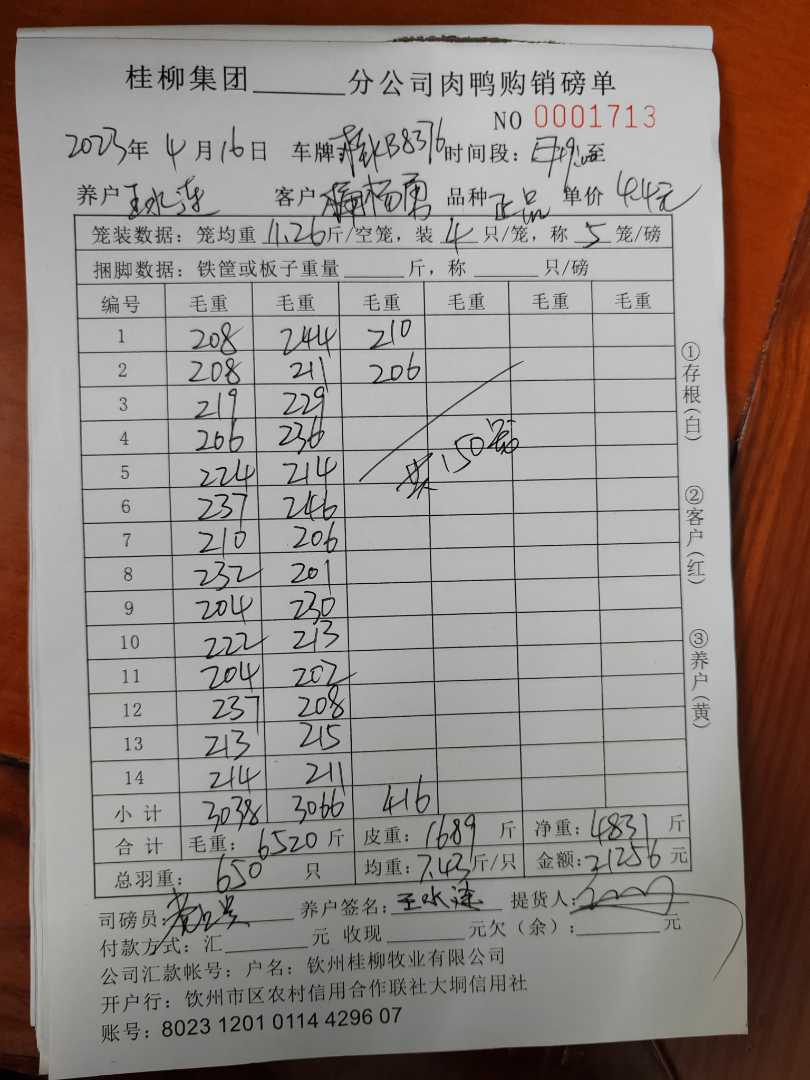 桂柳集团______分公司肉鸭购销磅单
NO 0001713
2023年 4 月 16 日 车牌 B8376 时间段: 至
养户 王水连 客户 杨勇 品种 正品 单价 4.4元
笼装数据: 笼均重 11.26 斤/空笼, 装 4 只/笼, 称 5 笼/磅
捆脚数据: 铁筐或板子重量______斤, 称______只/磅
编号 毛重 毛重 毛重 毛重 毛重 毛重
1 208 244 210
2 208 211 206
3 219 229
4 206 236
5 224 214
6 237 246
7 210 206
8 232 201
9 204 230
10 222 213
11 204 202
12 237 208
13 213 215
14 214 211
共150笼
小计 3038 3066 416
合计 毛重: 6520 斤 皮重: 1689 斤 净重: 4831 斤
总羽重: 650 只 均重: 7.43 斤/只 金额: 21256 元
司磅员: 养户签名: 王水连 提货人:
付款方式: 汇______元 收现______元欠(余):______元
公司汇款帐号: 户名: 钦州桂柳牧业有限公司
开户行: 钦州市区农村信用合作联社大垌信用社
账号: 8023 1201 0114 4296 07
①存根(白)
②客户(红)
③养户(黄)